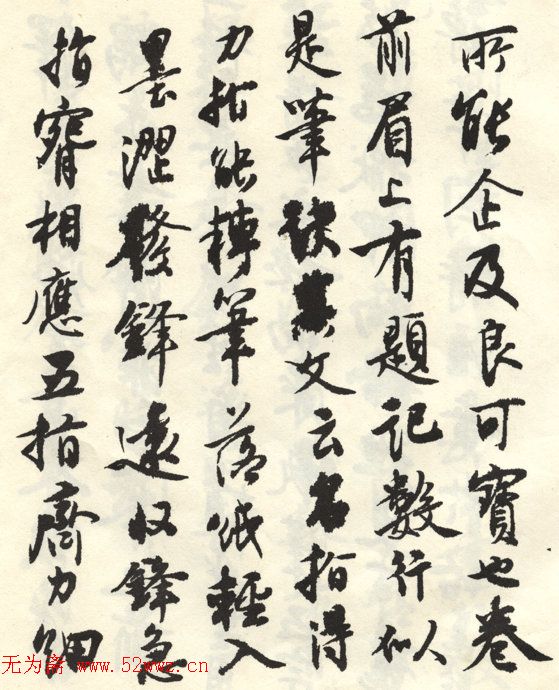 所能企及良可寶也卷
前眉上有題記數行似
是筆訣其文云名指得
力指能轉筆落紙輕入
墨澀發鋒遠收鋒急
指腕相應五指齊力細
无为斋 www.52wwz.cn